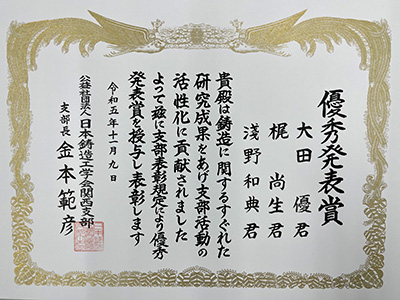 優秀発表賞
大田優君
梶尚生君
淺野和典君
貴殿は鋳造に関するすぐれた
研究成果をあげ支部活動の
活性化に貢献されました
よって茲に支部表彰規定により優秀
発表賞を授与し表彰します
令和五年十一月九日
公益社団法人日本鋳造工学会関西支部
支部長金本範彦